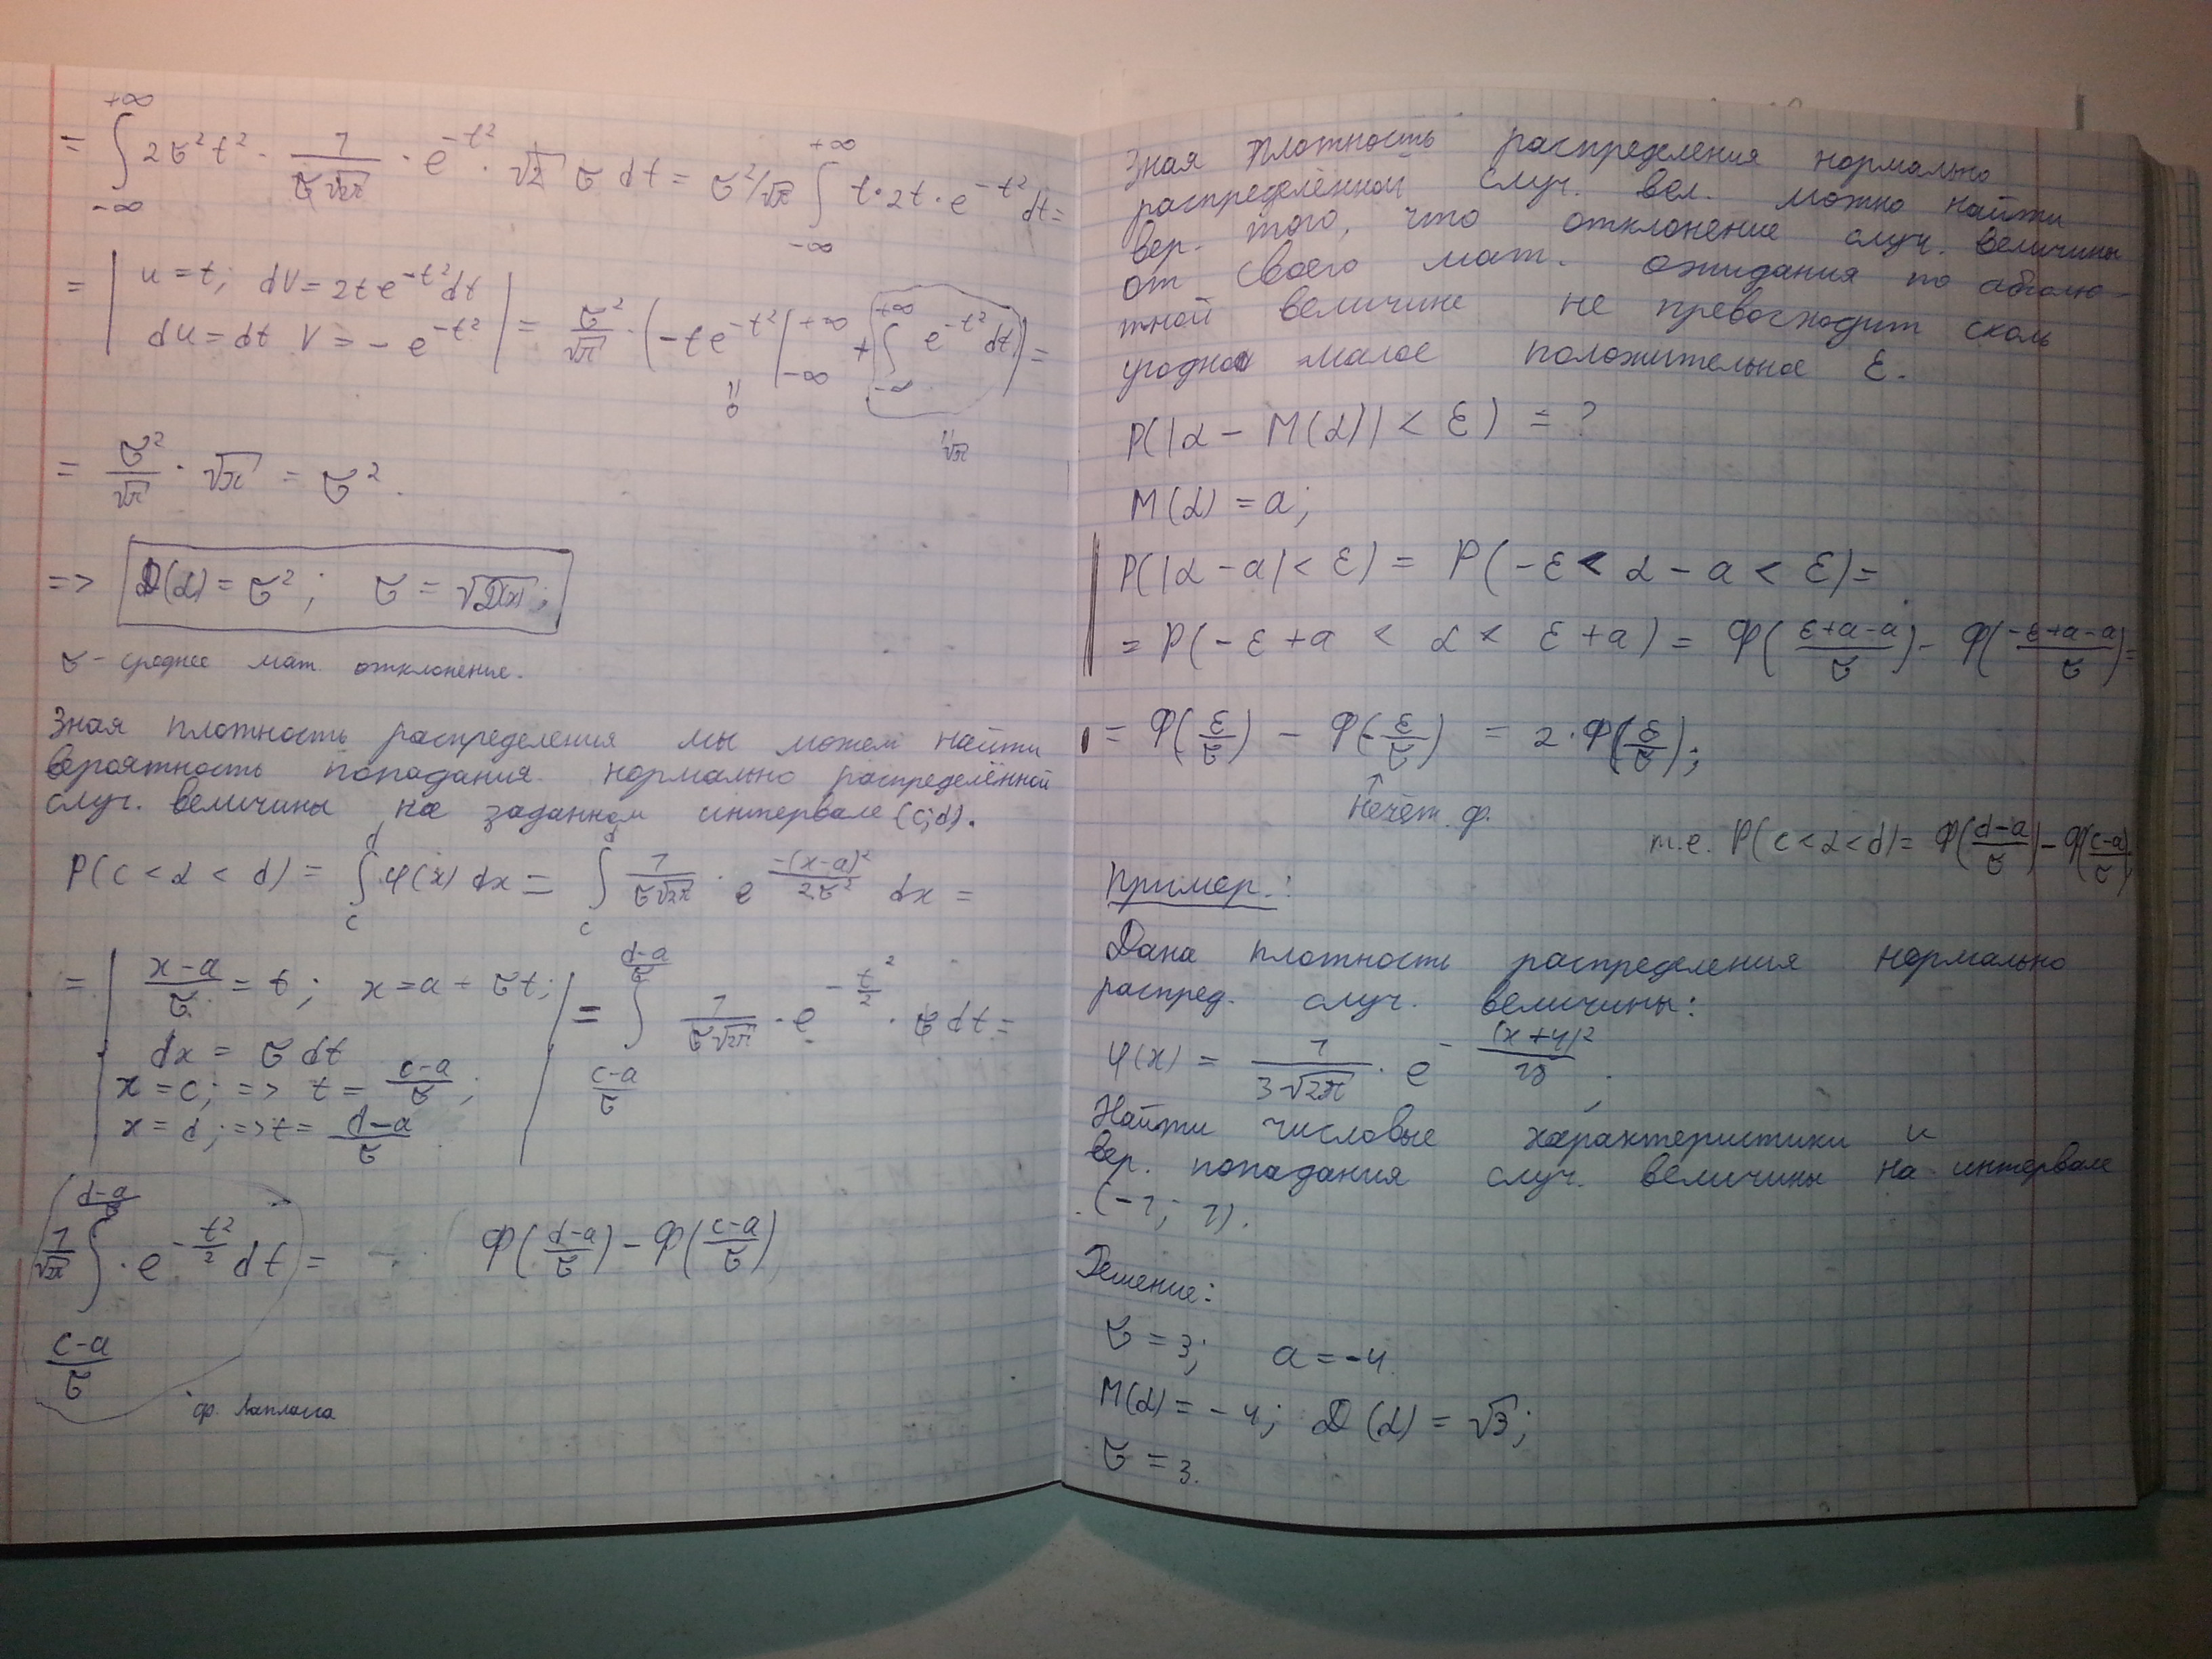 = ∫_{-∞}^{+∞} 2σ²t² · 1/(σ√2π) · e^{-t²} · √2 σ dt = σ²/√π ∫_{-∞}^{+∞} t·2t·e^{-t²}dt =
= | u=t; dV=2te^{-t²}dt
du=dt V=-e^{-t²} | = σ²/√π · (-te^{-t²}|_{-∞}^{+∞} + ∫_{-∞}^{+∞} e^{-t²}dt) =
" 0
" √π
= σ²/√π · √π = σ².
=> D(α) = σ²; σ = √D(x);
σ - среднее мат. отклонение.
Зная плотность распределения мы можем найти
вероятность попадания нормально распределённой
случ. величины на заданном интервале (c;d).
P(c < α < d) = ∫_c^d φ(x) dx = ∫_c^d 1/(σ√2π) · e^{-(x-a)²/2σ²} dx =
= | (x-a)/σ = t; x = a + σt;
dx = σ dt
x=c; => t = (c-a)/σ;
x=d; => t = (d-a)/σ | = ∫_{(c-a)/σ}^{(d-a)/σ} 1/(σ√2π) · e^{-t²/2} · σ dt =
(1/√2π ∫_{(c-a)/σ}^{(d-a)/σ} · e^{-t²/2} dt) = Φ((d-a)/σ) - Φ((c-a)/σ)
ф. Лапласа
Зная плотность распределения нормально
распределённой случ. вел. можно найти
вер. того, что отклонение случ. величины
от своего мат. ожидания по абсолю-
тной величине не превосходит сколь
угодно малое положительное ε.
P(|α - M(α)| < ε) = ?
M(α) = a;
P(|α - a| < ε) = P(-ε < α - a < ε) =
= P(-ε + a < α < ε + a) = Φ((ε+a-a)/σ) - Φ((-ε+a-a)/σ) =
= Φ(ε/σ) - Φ(-ε/σ) = 2·Φ(ε/σ);
↑
нечёт. ф.
т.е. P(c<α<d) = Φ((d-a)/σ) - Φ((c-a)/σ)
Пример.:
Дана плотность распределения нормально
распред. случ. величины:
φ(x) = 1/(3√2π) · e^{-(x+4)²/18};
Найти числовые характеристики и
вер. попадания случ. величины на интервале
(-1; 1).
Решение:
σ = 3; a = -4
M(α) = -4; D(α) = √3;
σ = 3.